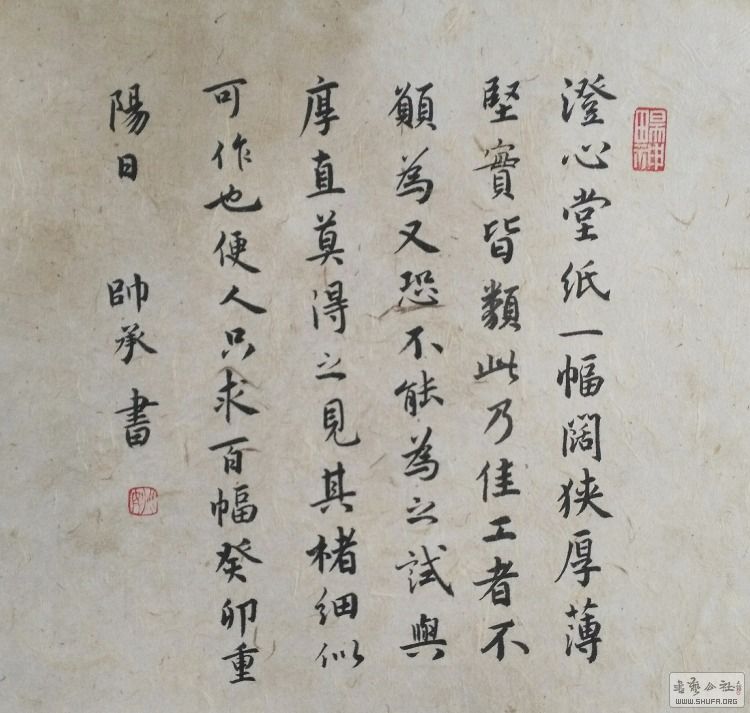 澄心堂紙一幅闊狹厚薄
堅實皆類此乃佳工者不
願為又恐不能為之試與
厚直莫得之見其楮細似
可作也便人只求百幅癸卯重
陽日 帥承書
書藝公社
WWW.SHUFA.ORG